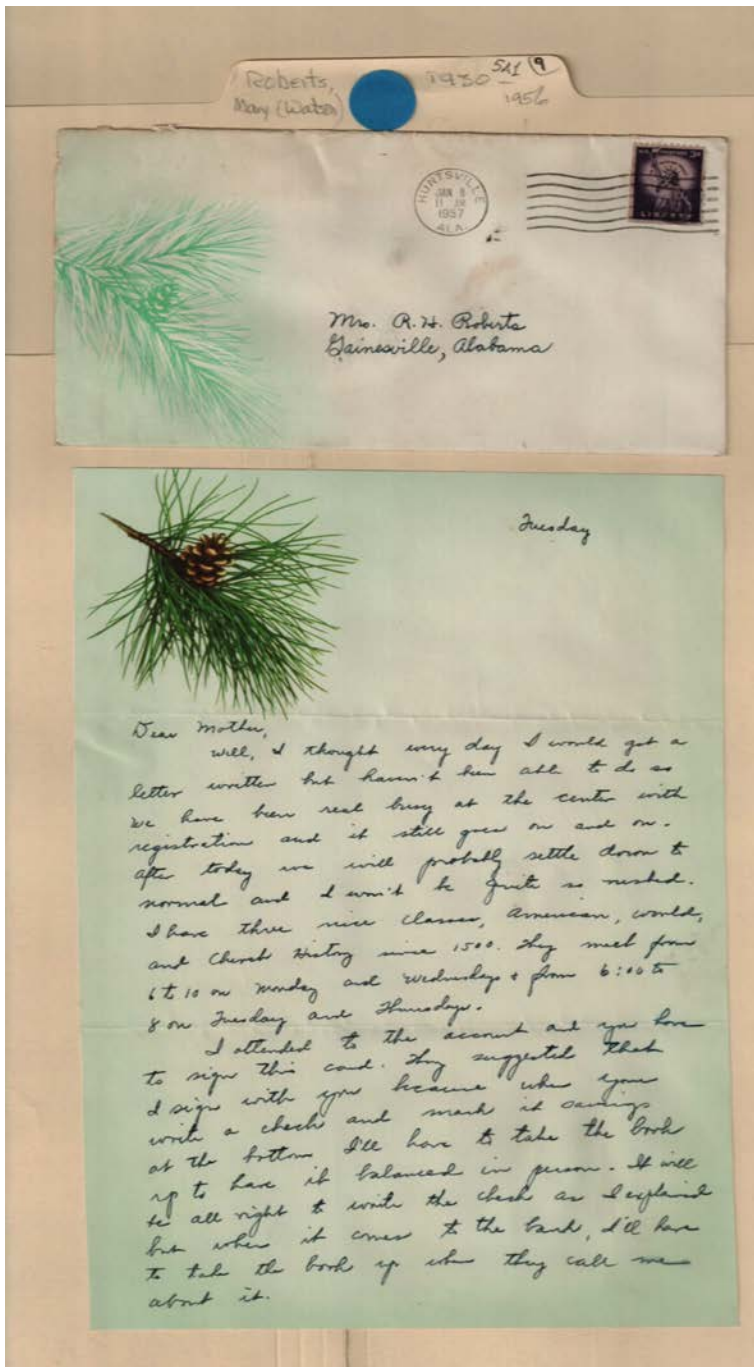 Roberts,
Mary (Watson)
1930 -
1956
5A1 9
HUNTSVILLE
JAN 8
11
1957
ALA.
LIBERTY
Mrs. R. H. Roberts
Gainesville, Alabama
Tuesday
Dear Mother,
Well, I thought every day I would get a
letter written but haven't been able to do so
We have been real busy at the center with
registration and it still goes on and on.
After today we will probably settle down to
normal and I won't be quite so rushed.
I have three nice classes, American, World,
and Church History since 1500. They meet from
6 to 10 on Monday and Wednesdays & from 6:00 to
8 on Tuesday and Thursdays.
I attended to the account and you have
to sign this card. They suggested that
I sign with you because when you
write a check and mark it savings
at the bottom I'll have to take the book
up to have it balanced in person. It will
be all right to write the check as I explained
but when it comes to the bank, I'll have
to take the book up when they call me
about it.